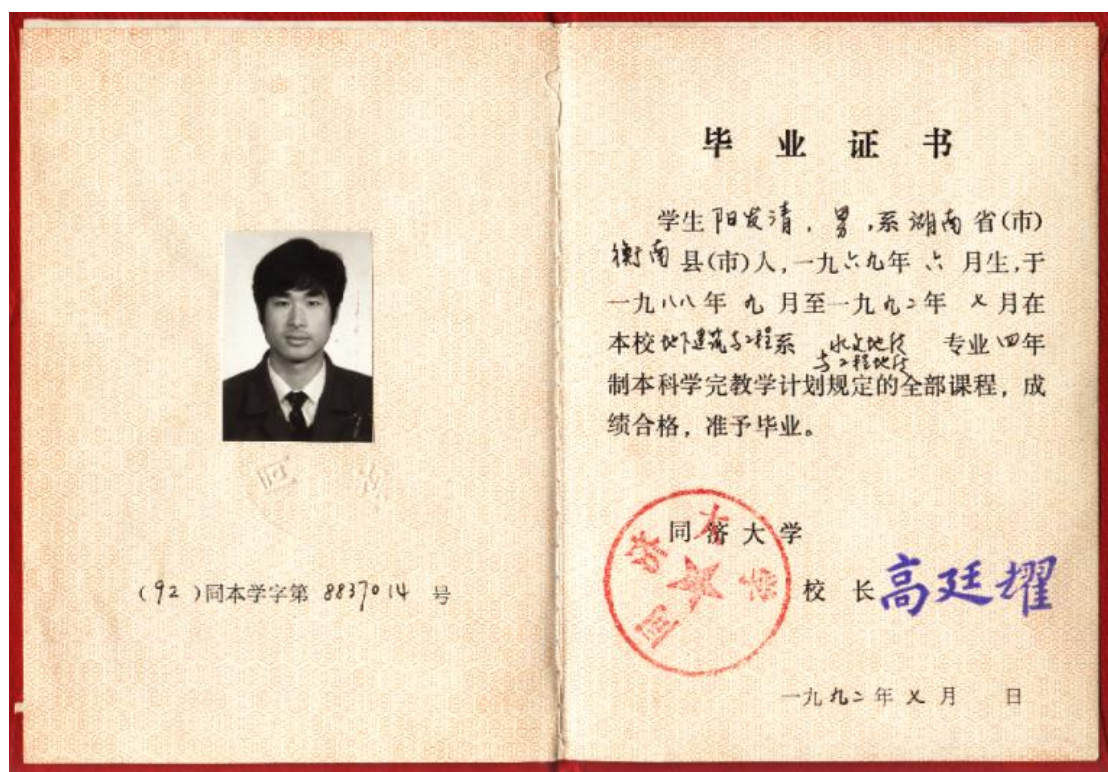 同 济
(92)同本学字第 8837014 号
毕 业 证 书
学生阳发清，男，系湖南省(市)
衡南县(市)人，一九六九年六月生，于
一九八八年九月至一九九二年七月在
本校地下建筑与工程系 水文地质 专业四年
与工程地质
制本科学完教学计划规定的全部课程，成
绩合格，准予毕业。
同济大学
同济大学
校 长 高廷耀
一九九二年七月 日